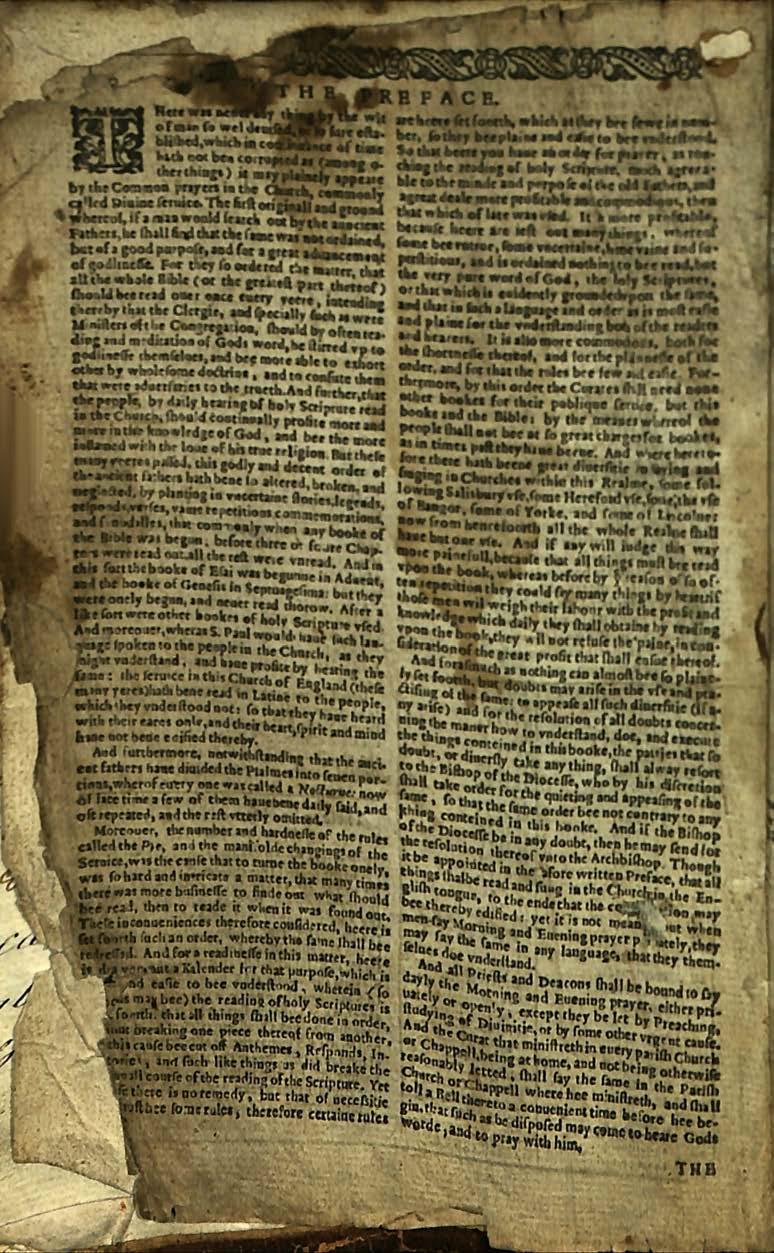 THE PREFACE.
THere was neuer any thing by the wit
of man so wel deuised, or so sure esta-
blished, which in continuance of time
hath not ben corrupted as (among o-
ther things) it may plainely appeare
by the Common prayers in the Church, commonly
called Diuine seruice. The first originall and ground
whereof, if a man would search out by the auncient
Fathers, he shall find that the same was not ordained,
but of a good purpose, and for a great aduancement
of godlinesse. For they so ordered the matter, that
all the whole Bible (or the greatest part thereof)
should bee read ouer once euery yeere, intending
thereby that the Clergie, and specially such as were
Ministers of the Congregation, should by often rea-
ding and meditation of Gods word, be stirred vp to
godlinesse themselues, and bee more able to exhort
other by wholesome doctrine, and to confute them
that were aduersaries to the trueth. And further, that
the people, by daily hearing of holy Scripture read
in the Church, should continually profite more and
more in the knowledge of God, and bee the more
inflamed with the loue of his true religion. But these
many yeeres passed, this godly and decent order of
the ancient fathers hath bene so altered, broken, and
neglected, by planting in vncertaine stories, legends,
responds, verses, vaine repetitions commemorations,
and synodalles, that commonly when any booke of
the Bible was begun, before three or foure Chap-
ters were read out, all the rest were vnread. And in
this sort the booke of Esai was begunne in Aduent,
and the booke of Genesis in Septuagesima: but they
were onely begun, and neuer read thorow. After a
like sort were other bookes of holy Scripture vsed.
And moreouer, whereas S. Paul would haue such lan-
guage spoken to the people in the Church, as they
might vnderstand, and haue profite by hearing the
same: the seruice in this Church of England (these
many yeres) hath bene read in Latine to the people,
which they vnderstood not: so that they haue heard
with their eares only, and their heart, spirit and mind
haue not bene edified thereby.
And furthermore, notwithstanding that the anci-
ent fathers haue diuided the Psalmes into seuen por-
tions, wherof euery one was called a Nocturne: now
of late time a few of them haue bene daily said, and
oft repeated, and the rest vtterly omitted.
Moreouer, the number and hardnesse of the rules
called the Pye, and the manifolde changings of the
Seruice, was the cause that to turne the booke onely,
was so hard and intricate a matter, that many times
there was more businesse to finde out what should
bee read, then to reade it when it was found out.
These inconueniences therefore considered, heere is
set foorth such an order, whereby the same shall bee
redressed. And for a readinesse in this matter, heere
is drawen out a Kalender for that purpose, which is
and easie to bee vnderstood, wherein (so
as may bee) the reading of holy Scriptures is
foorth, that all things shall bee done in order,
out breaking one piece thereof from another,
this cause bee cut off Anthemes, Responds, In-
tories, and such like things as did breake the
all course of the reading of the Scripture. Yet
se there is no remedy, but that of necessitie
must bee some rules, therefore certaine rules
are heere set foorth, which as they bee fewe in num-
ber, so they bee plaine and easie to bee vnderstood.
So that heere you haue an order for prayer, as tou-
ching the reading of holy Scripture, much agreea-
ble to the minde and purpose of the old Fathers, and
a great deale more profitable and commodious, then
that which of late was vsed. It is more profitable,
because heere are left out many things, whereof
some bee vntrue, some vncertaine, some vaine and su-
perstitious, and is ordained nothing to bee read, but
the very pure word of God, the holy Scriptures,
or that which is euidently grounded vpon the same,
and that in such a language and order as is most easie
and plaine for the vnderstanding both of the readers
and hearers. It is also more commodious, both for
the shortnesse thereof, and for the plainnesse of the
order, and for that the rules bee few and easie. Fur-
thermore, by this order the Curates shall need none
other bookes for their publique seruice, but this
booke and the Bible: by the meanes whereof the
people shall not bee at so great charges for bookes,
as in times past they haue beene. And where hereto-
fore there hath beene great diuersitie in saying and
singing in Churches within this Realme, some fol-
lowing Salisbury vse, some Hereford vse, some the vse
of Bangor, some of Yorke, and some of Lincolne:
now from henceforth all the whole Realme shall
haue but one vse. And if any will iudge this way
more painefull, because that all things must bee read
vpon the book, whereas before by ye reason of so of-
ten repetition they could say many things by heart: if
those men wil weigh their labour with the profit and
knowledge which daily they shall obtaine by reading
vpon the book, they will not refuse the paine, in con-
sideration of the great profit that shall ensue thereof.
And forasmuch as nothing can almost bee so plaine-
ly set foorth, but doubts may arise in the vse and pra-
ctising of the same: to appease all such diuersitie (if a-
ny arise) and for the resolution of all doubts concer-
ning the maner how to vnderstand, doe, and execute
the things conteined in this booke, the parties that so
doubt, or diuersly take any thing, shall alway resort
to the Bishop of the Diocesse, who by his discretion
shall take order for the quieting and appeasing of the
same, so that the same order bee not contrary to any
thing conteined in this booke. And if the Bishop
of the Diocesse be in any doubt, then he may send for
the resolution thereof vnto the Archbishop. Though
it be appointed in the afore written Preface, that all
things shalbe read and sung in the Church in the En-
glish tongue, to the ende that the co ion may
bee thereby edified: yet it is not mean but when
men say Morning and Euening prayer p uately, they
may say the same in any language, that they them-
selues doe vnderstand.
And all Priests and Deacons shall be bound to say
dayly the Morning and Euening prayer, either pri-
uately or openly, except they be let by Preaching,
studying of Diuinitie, or by some other vrgent cause.
And the Curat that ministreth in euery parish Church
or Chappell, being at home, and not being otherwise
reasonably letted, shall say the same in the Parish
Church or Chappell where hee ministreth, and shall
toll a Bell thereto a conuenient time before hee be-
gin, that such as be disposed may come to heare Gods
worde, and to pray with him,
THE